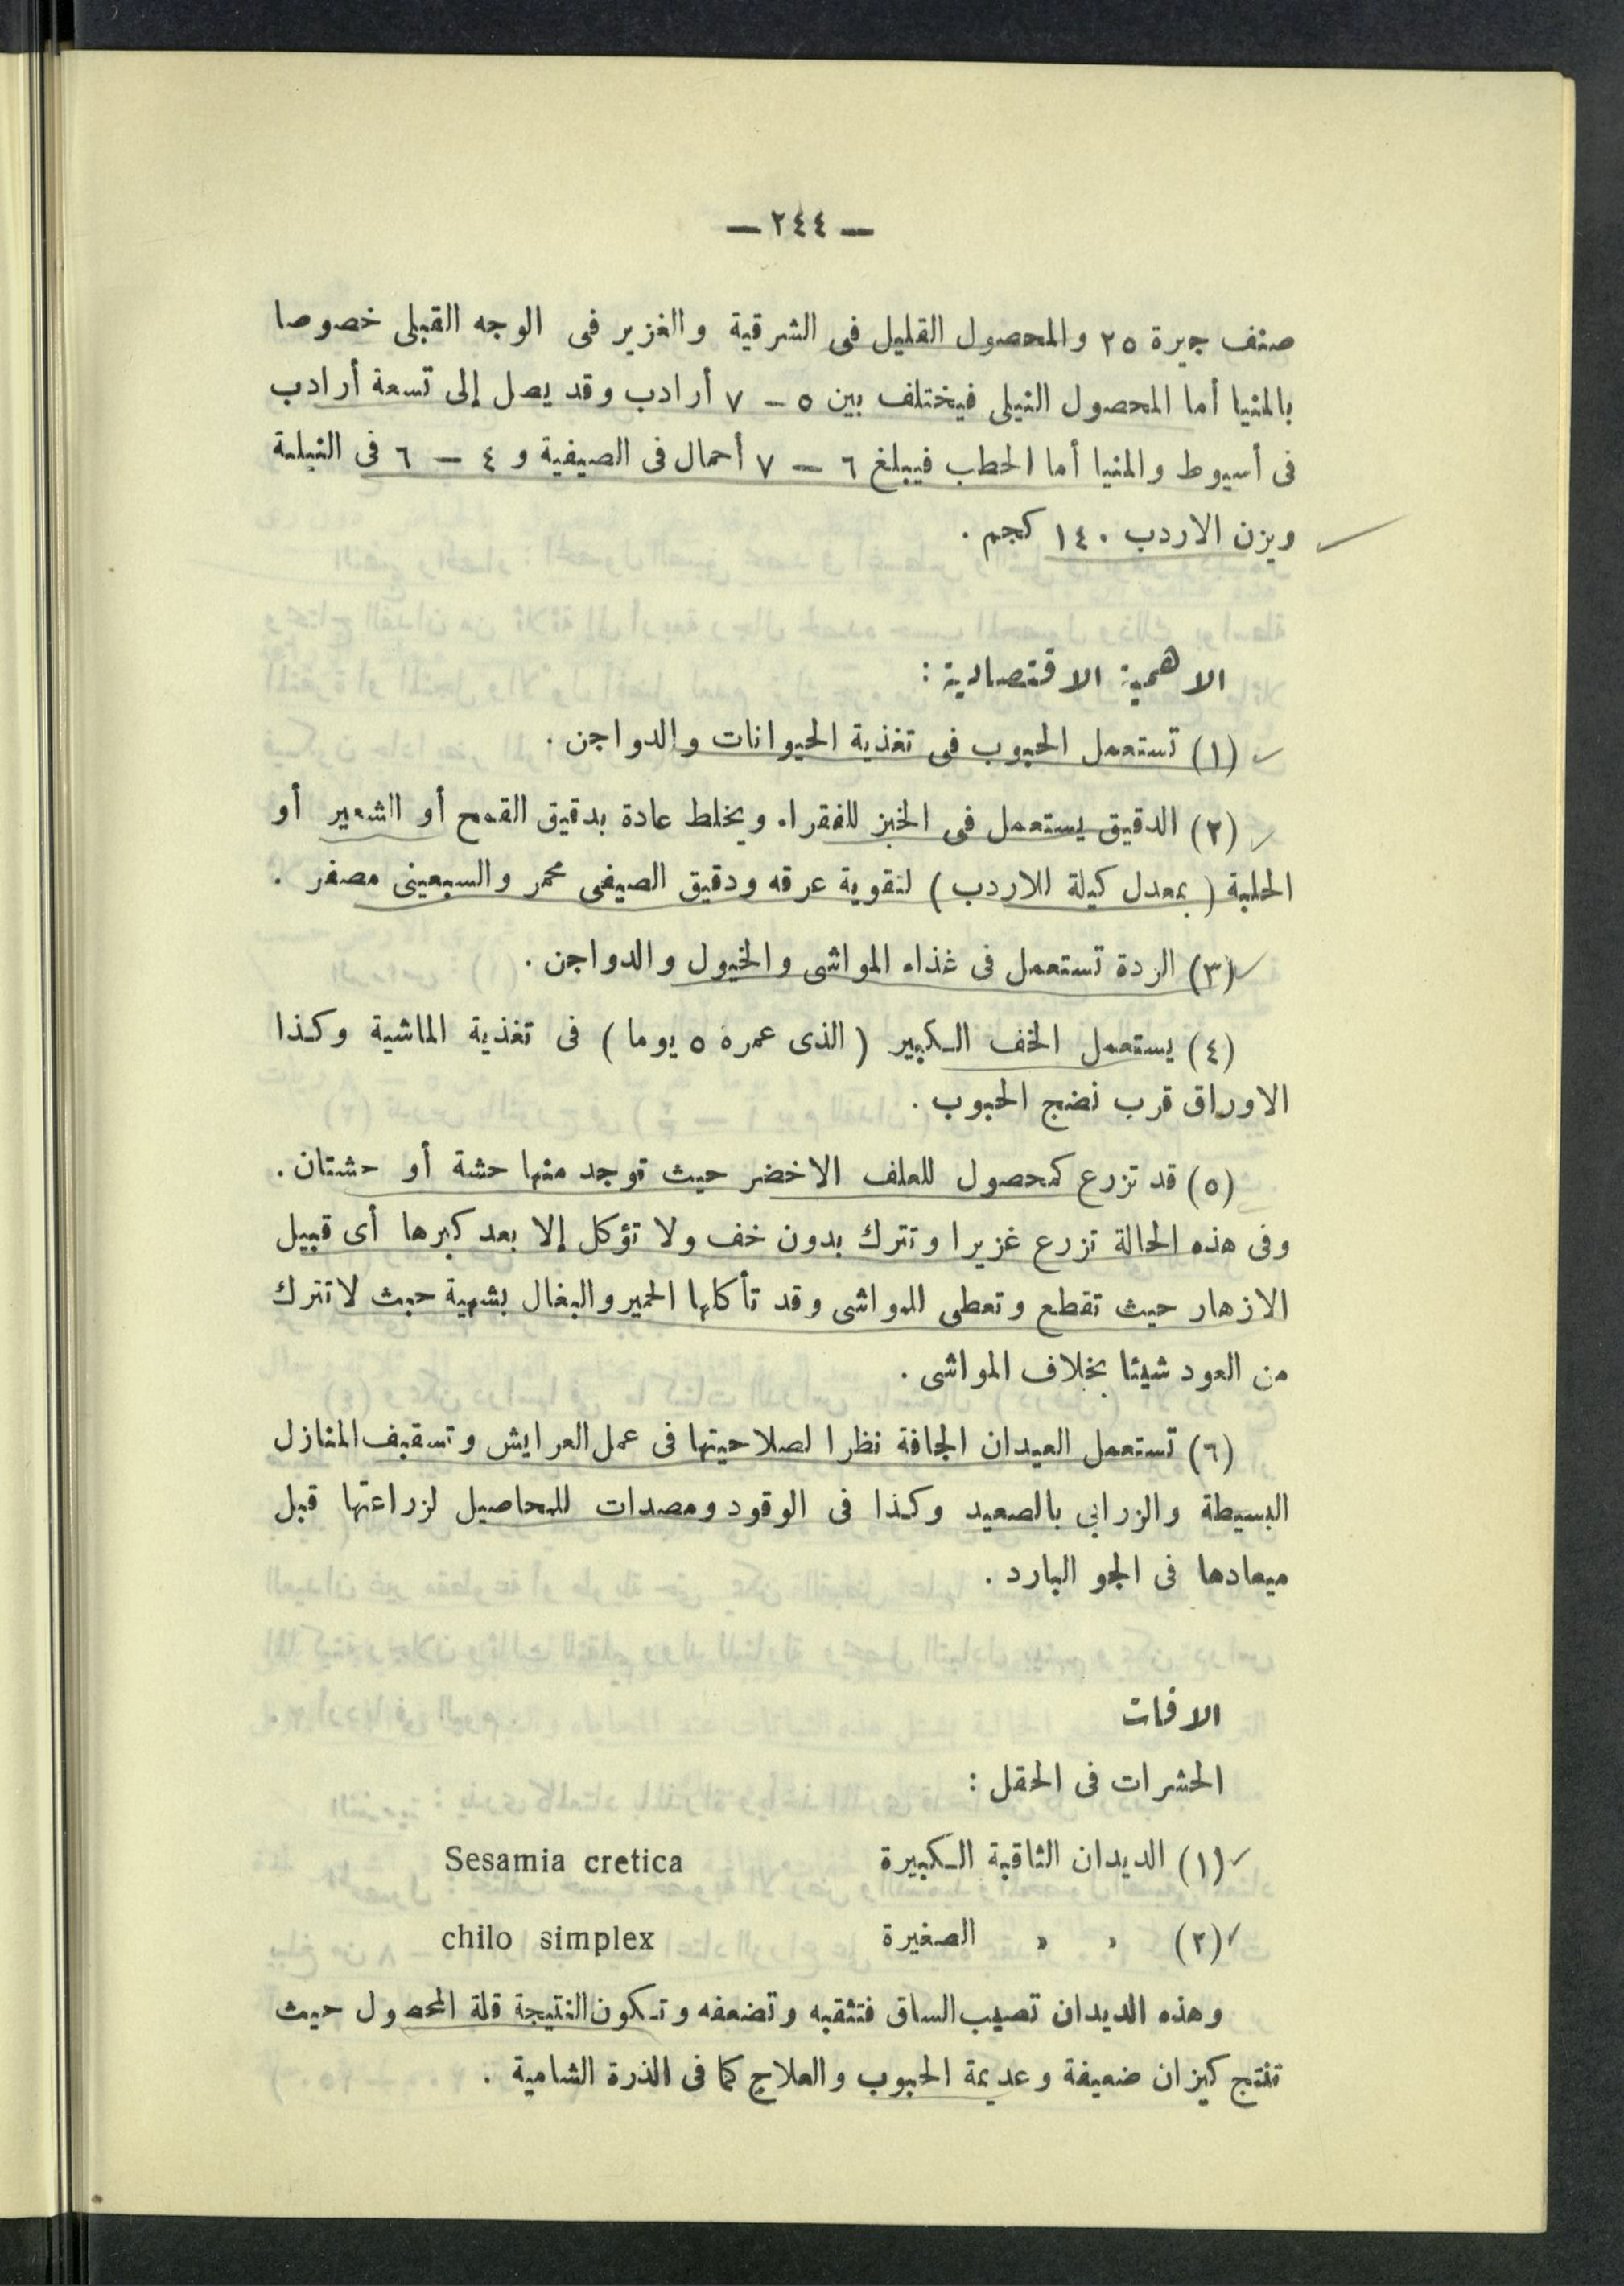 — ٢٤٤ —
صنف جيزة ٢٥ والمحصول القليل فى الشرقية والغزير فى الوجه القبلى خصوصا
بالمنيا أما المحصول النيلى فيختلف بين ٥ — ٧ أرادب وقد يصل إلى تسعة أرادب
فى أسيوط والمنيا أما الحطب فيبلغ ٦ — ٧ أحمال فى الصيفية و ٤ — ٦ فى النيلية
ويزن الاردب ١٤٠ كجم .
الاهمية الاقتصادية :
(١) تستعمل الحبوب فى تغذية الحيوانات والدواجن .
(٢) الدقيق يستعمل فى الخبز للفقراء ويخلط عادة بدقيق القمح أو الشعير أو
الحلبة ( بمعدل كيلة للاردب ) لتقوية عرقه ودقيق الصيفى محمر والسبعينى مصفر .
(٣) الردة تستعمل فى غذاء المواشى والخيول والدواجن .
(٤) يستعمل الخف الكبير ( الذى عمره ٥ يوما ) فى تغذية الماشية وكذا
الاوراق قرب نضج الحبوب .
(٥) قد تزرع كمحصول للعلف الاخضر حيث توجد منها حشة أو حشتان .
وفى هذه الحالة تزرع غزيرا وتترك بدون خف ولا تؤكل إلا بعد كبرها أى قبيل
الازهار حيث تقطع وتعطى للمواشى وقد تأكلها الحمير والبغال بشهية حيث لا تترك
من العود شيئا بخلاف المواشى .
(٦) تستعمل العيدان الجافة نظرا لصلاحيتها فى عمل العرايش وتسقيف المنازل
البسيطة والزرابى بالصعيد وكذا فى الوقود ومصدات للمحاصيل لزراعتها قبل
ميعادها فى الجو البارد .
الافات
الحشرات فى الحقل :
(١) الديدان الثاقبة الكبيرة Sesamia cretica
(٢) » » الصغيرة chilo simplex
وهذه الديدان تصيب الساق فتثقبه وتضعفه وتكون النتيجة قلة المحصول حيث
تنتج كيزان ضعيفة وعديمة الحبوب والعلاج كما فى الذرة الشامية .